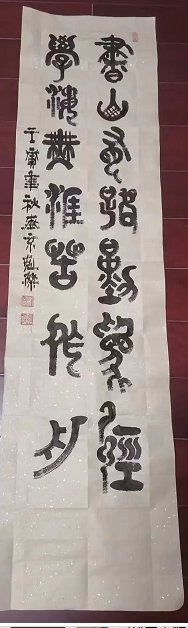 書山有路勤為徑
學海無涯苦作舟
壬寅年秋